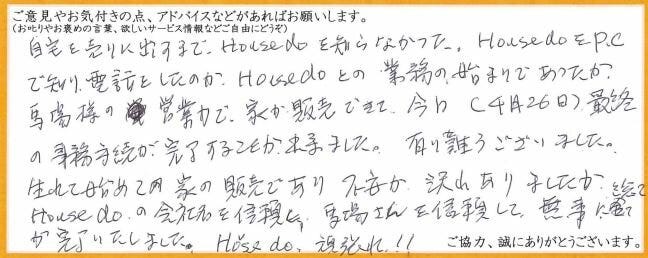 ご意見やお気付きの点、アドバイスなどがあればお願いします。
(お叱りやお褒めの言葉、欲しいサービス情報などご自由にどうぞ)
自宅を売りに出すまで、House doを知らなかった。House doをP.C
で知り、電話をしたのが House doとの 業務の始まりであったが、
馬場様の 営業力で、家が販売できて、今日(4月26日)最終
の事務手続が完了することが出来ました。有り難うございました。
生れて始めての家の販売であり 不安が ありましたが、
House do.の会社を信頼し、馬場さんを信頼して、無事に総て
が完了いたしました。House do. 頑張れ!!
ご協力、誠にありがとうございます。